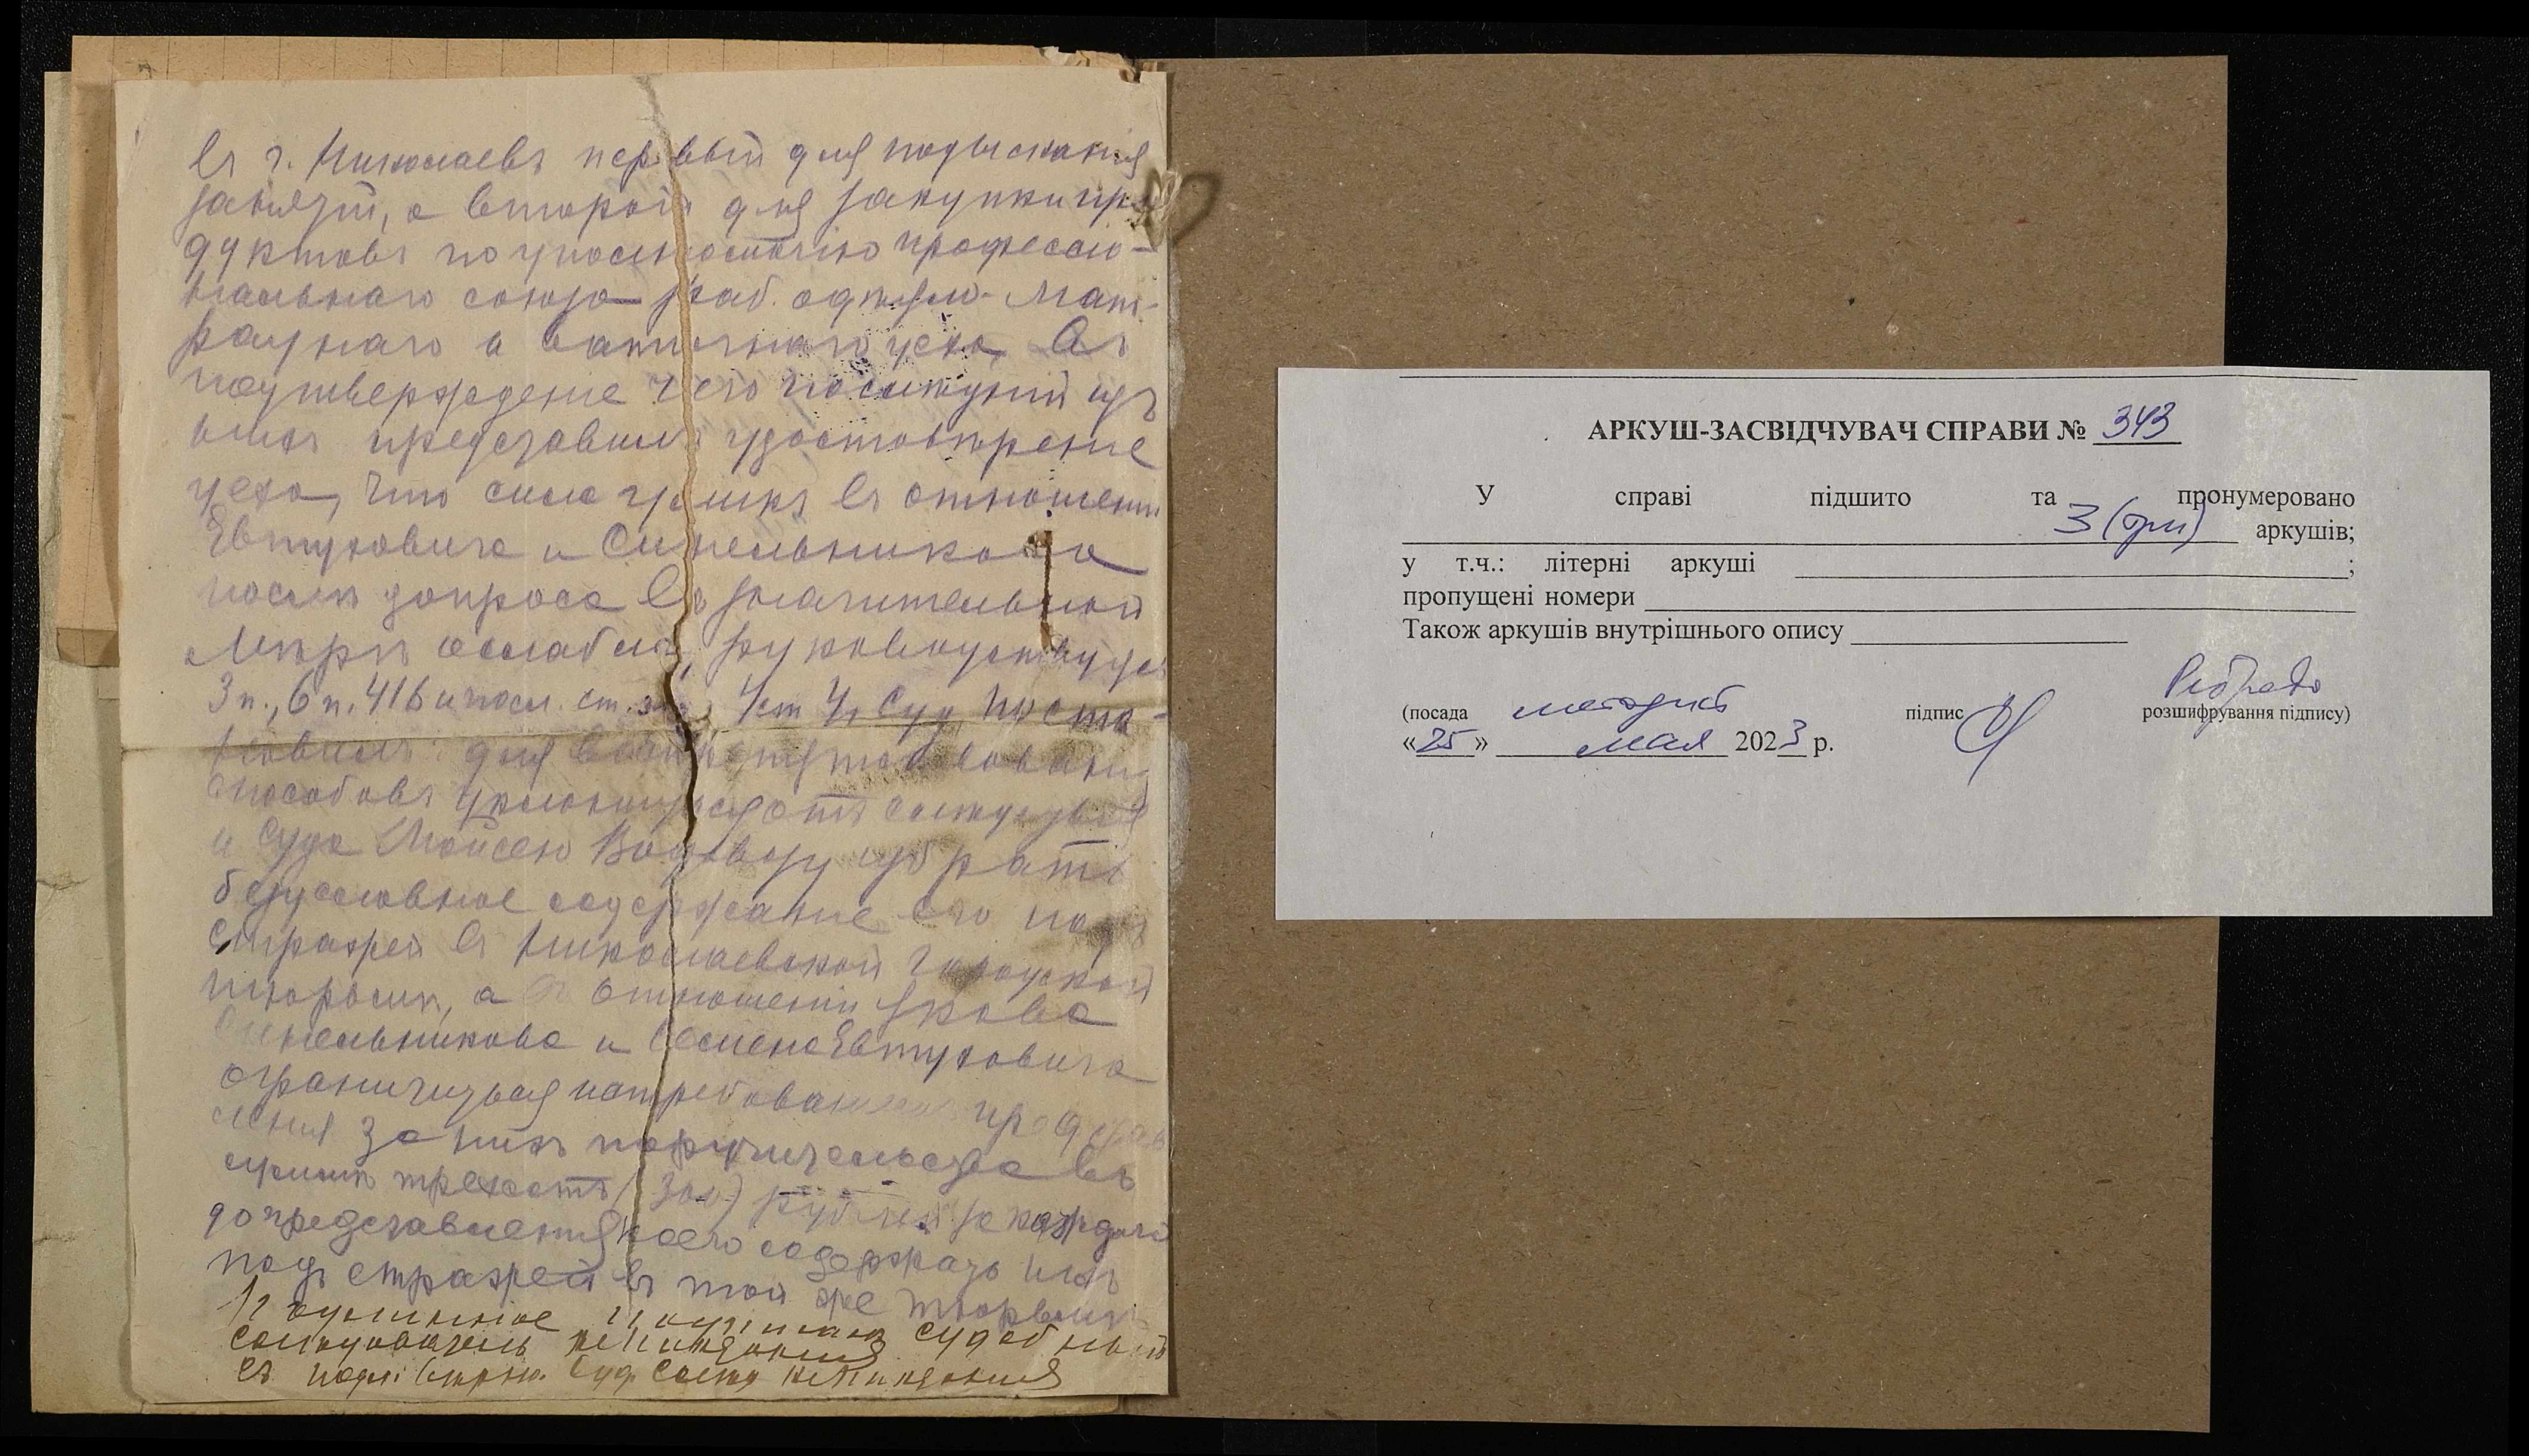 въ г. Николаевъ первый для подысканія
занятій, а второй для закупки про
дуктовъ по уполномочію профессіо-
нальнаго союза раб. одѣяло- мат-
рацнаго и ваточнаго цеха. Въ
подтвержденіе чего послѣдній изъ
нихъ представилъ удостовѣреніе
цеха, что сила уликъ въ отношеніи
Евтуховича и Синельникова
послѣ допроса въ значительной
мѣрѣ ослабла, руководствуясь
3 п., 6 п. 416 и посл. ст. Уст Уг Суд поста-
новилъ: для воспрепятствованія
способовъ уклониться отъ слѣдствія
и суда Мойсею избрать
безусловное содержаніе его подъ
стражей въ Николаевской городской
тюрьмѣ, а въ отношеніи Якова
Синельникова и Семена Евтуховича
ограничиться потребованіемъ представ
ленія за нихъ поручительства въ
суммѣ трехсотъ (300) рублей за каждаго
до представленія коего содержать ихъ
подъ стражей въ той же тюрьмѣ
Подлинное подписалъ Судебный
слѣдователь
Съ подл. вѣрно. Суд. Слѣд
АРКУШ-ЗАСВІДЧУВАЧ СПРАВИ № 343
У справі підшито та пронумеровано
3 (три) аркушів;
у т.ч.: літерні аркуші ;
пропущені номери
Також аркушів внутрішнього опису
(посада методист підпис розшифрування підпису)
«25» мая 2023 р.